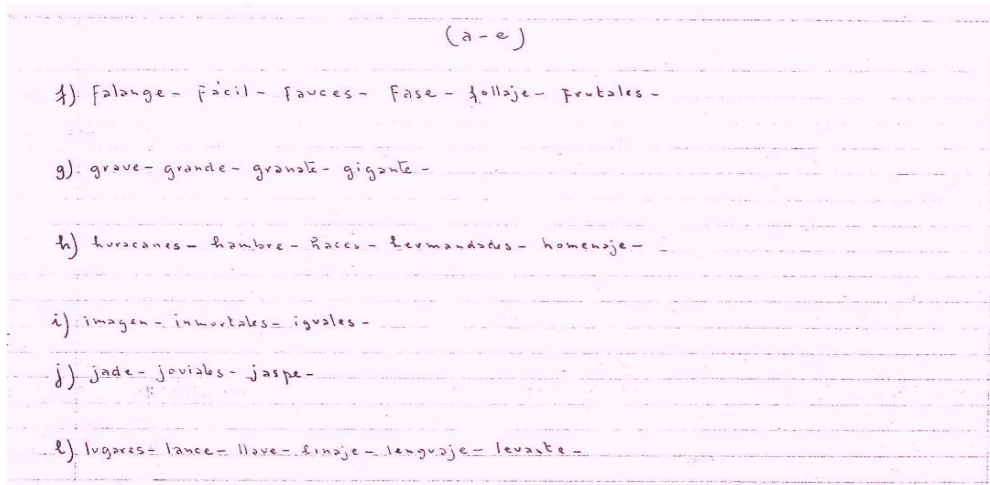 (a-e)
f) falange - fácil - fauces - fase - follaje - frutales -
g) grave - grande - granate - gigante -
h) huracanes - hambre - haces - hermandades - homenaje -
i) imagen - inmortales - iguales -
j) jade - joviales - jaspe -
l) lugares - lance - llave - linaje - lenguaje - levante -